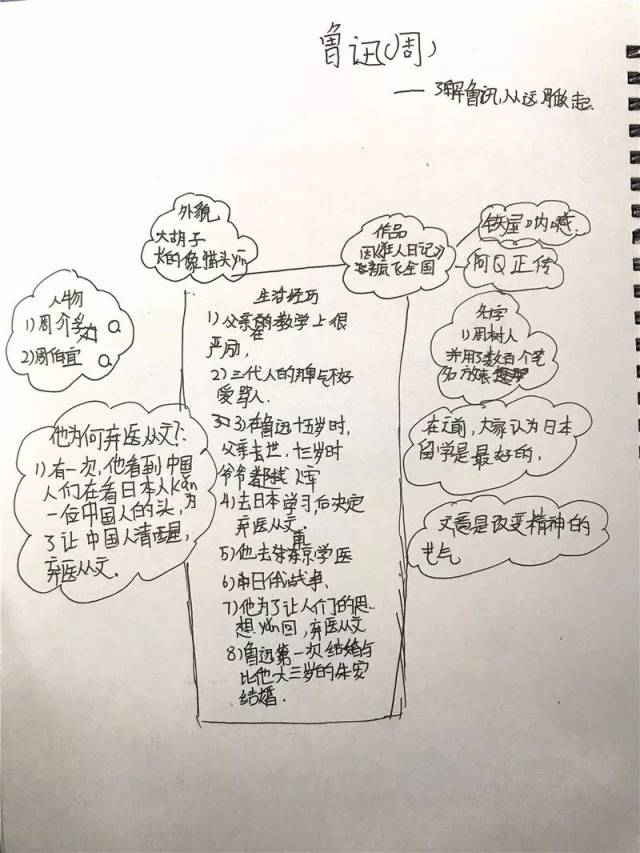 鲁迅(周)
——了解鲁迅,从这周做起.
外貌
大胡子
长的象猫头yīn
作品
因《狂人日记》
飞全国
铁屋 呐喊.
阿Q正传
人物
1)周介
2)周伯宜
名字
1)周树人
并用了数百个笔
在之前,大家认为日本
留学是最好的,
文竟是改变精神的
艺气
他为何弃医从文?:
1)有一次,他看到中国
人们在看日本人kǎn
一位中国人的头,为
了让中国人清醒,
弃医从文.
生对经历
1)父亲在教学上很
严励,
2)三代人的
爱骂人.
3)在鲁迅十五岁时,
父亲去世,十三岁时
爷爷都 入牢
4)去日本学习,后决定
弃医从文.
5)他去东京学医
6)日俄战争.
7)他为了让人们的思
想 回,弃医从文
8)鲁迅第一次结婚与
比他大三岁的朱安
结婚.